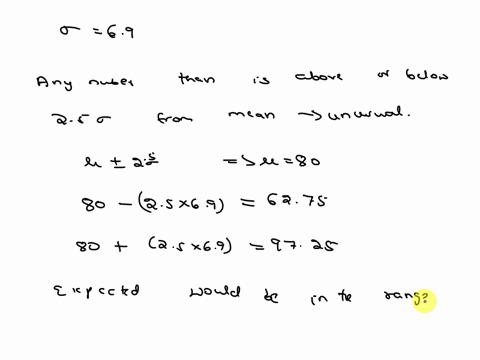 σ = 6.9
Any number than is above or below
2.5 σ from mean → unusual.
μ ± 2.5 => μ = 80
80 - (2.5 x 6.9) = 62.75
80 + (2.5 x 6.9) = 97.25
Expected would be in the rang?